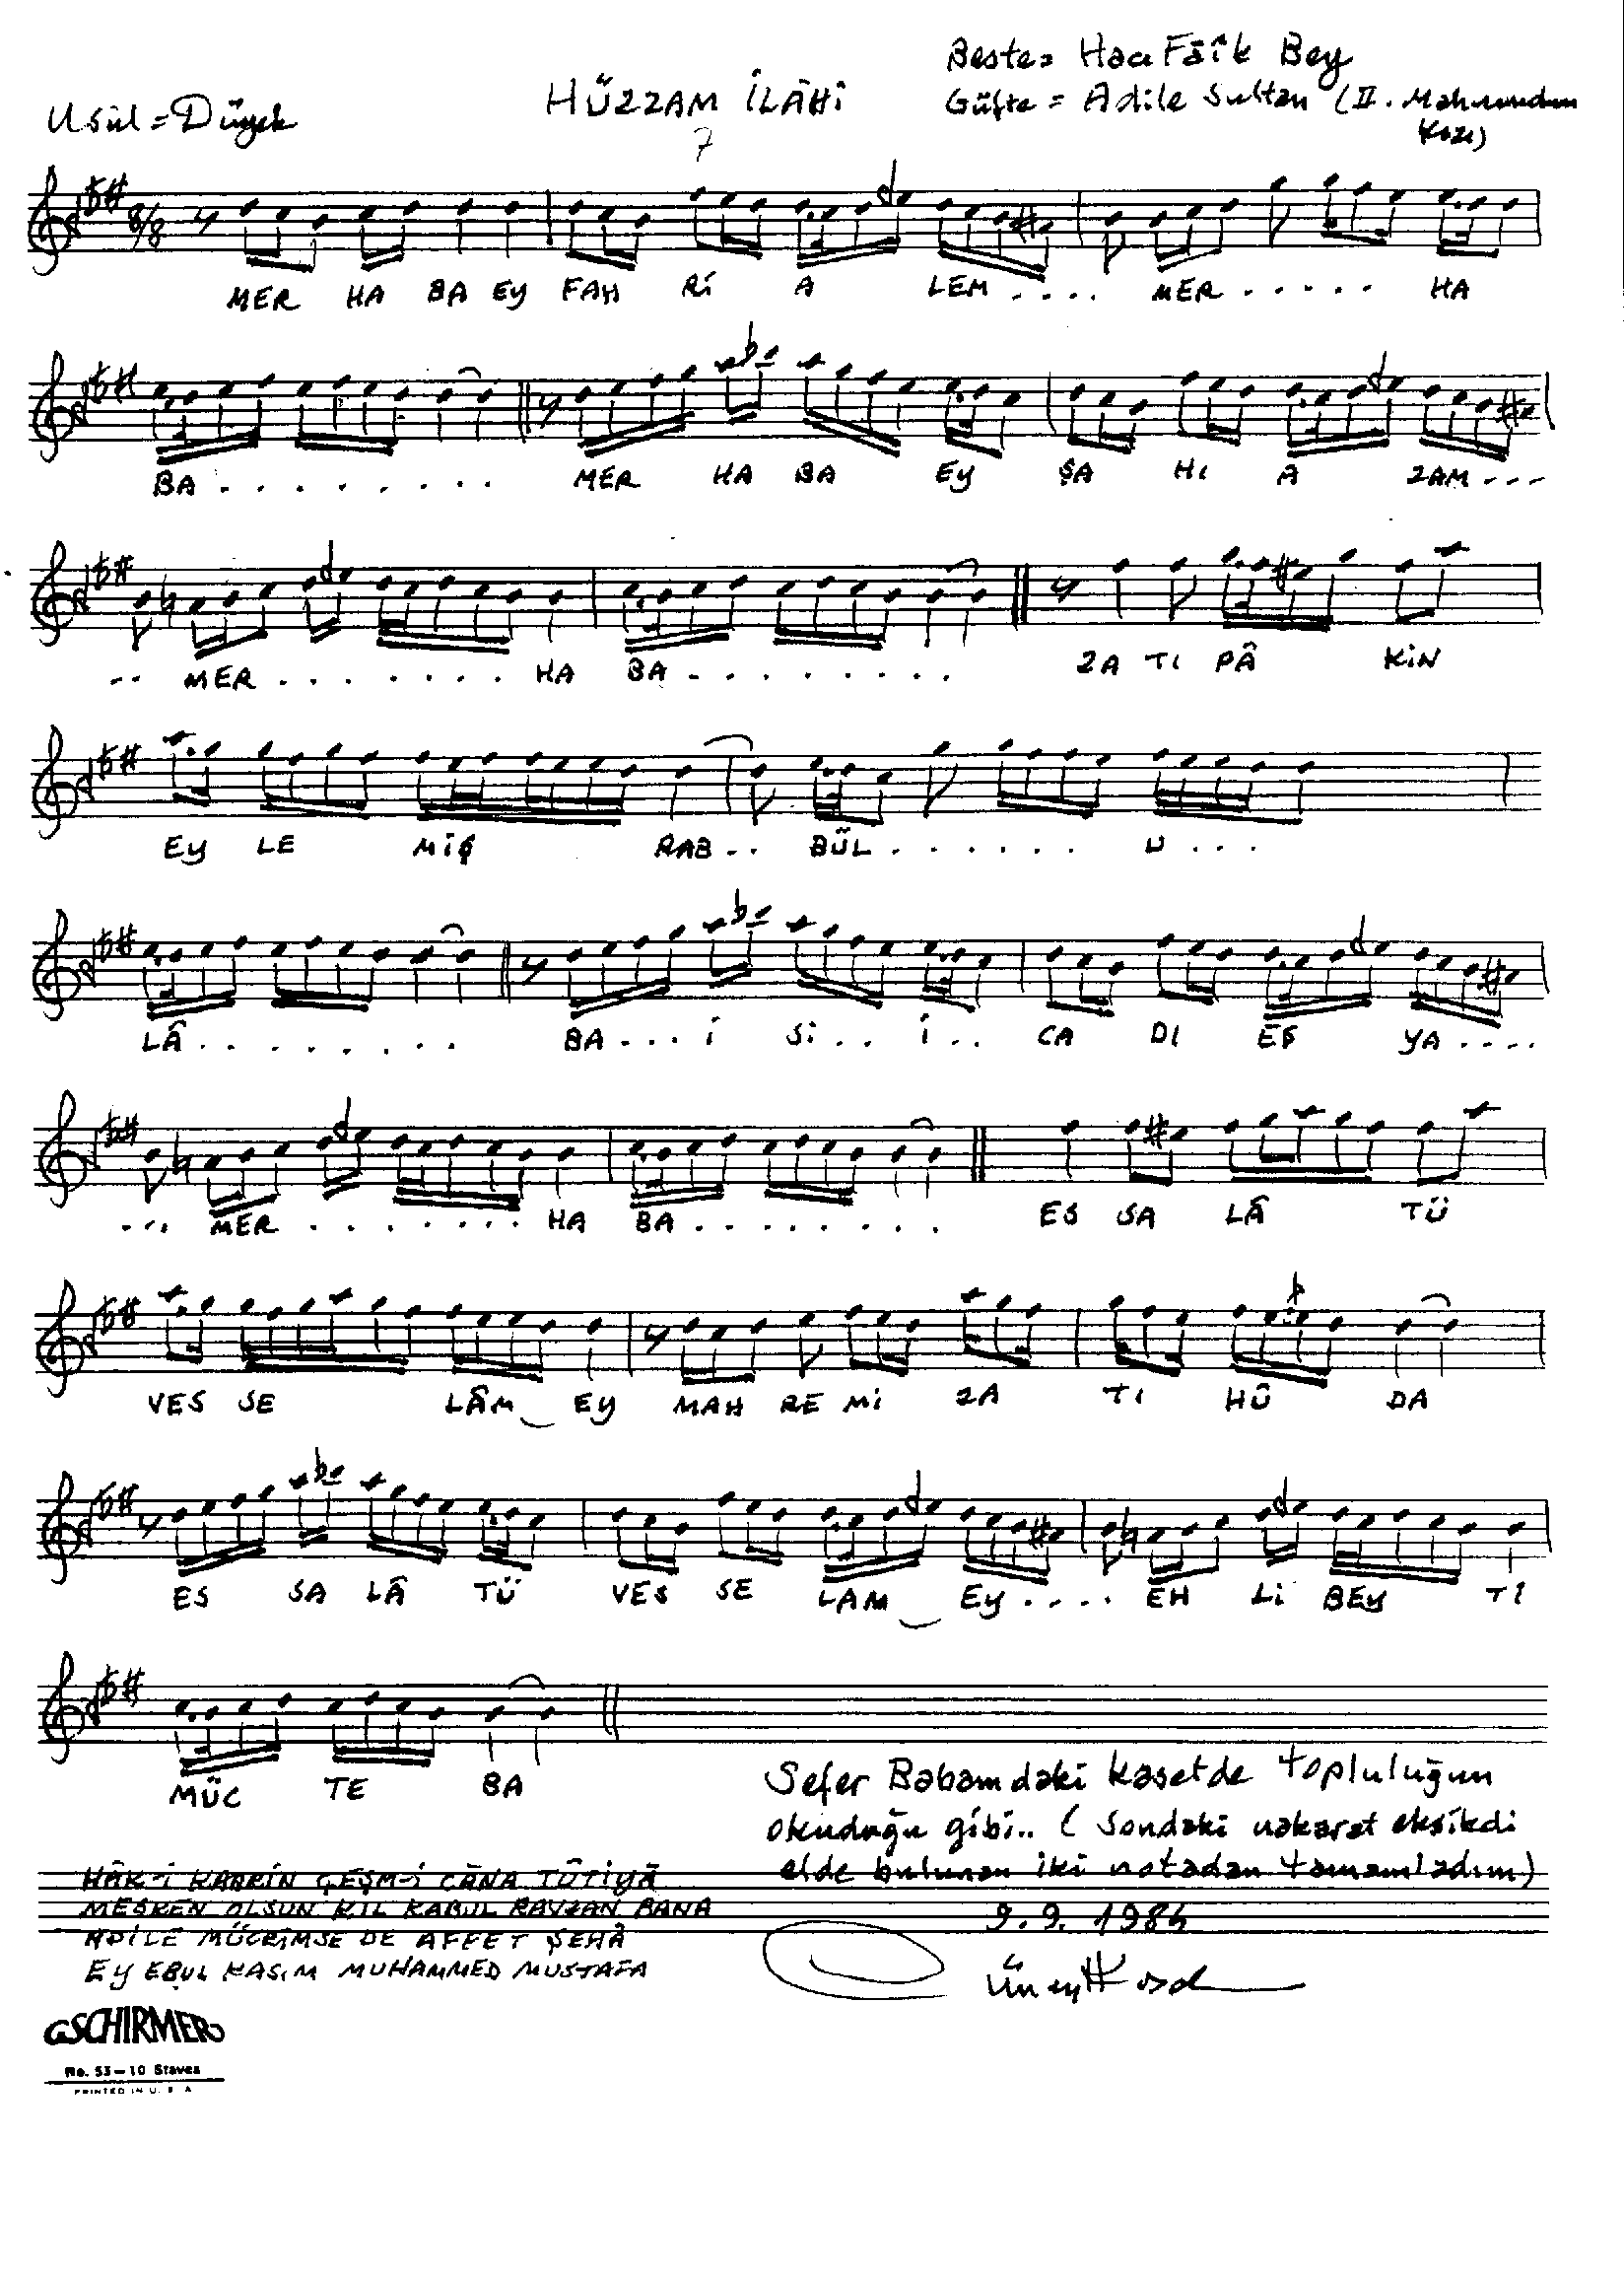 Beste= Hacı Fâik Bey
Usûl = Düyek
HÜZZAM İLÂHİ
Güfte = Adile Sultan (II. Mahmudun Kızı)
7
8/8
MER HA BA EY FAH Rİ A LEM .... MER ..... HA
BA ........ MER HA BA EY ŞA HI A ZAM ---
-- MER ....... HA BA ....... ZA TI PÂ KİN
EY LE MİŞ RAB .. BÜL ...... U ...
LÂ ....... BA ... İ Sİ .. İ .. CA DI EŞ YA ....
... MER ....... HA BA ........ ES SA LÂ TÜ
VES SE LÂM EY MAH RE Mİ ZA TI HÛ DA
ES SA LÂ TÜ VES SE LAM EY .... EH Lİ BEY TI
MÜC TE BA
Sefer Babamdaki kasetde topluluğun
okuduğu gibi.. (sondaki nakarat eksikdi
elde bulunan iki notadan tamamladım)
HÂK-İ KABRİN ÇEŞM-İ CÂNA TÛTİYÂ
MESKEN OLSUN KIL KABUL RAVZAN BANA
9.9.1985
ADİLE MÜCRİMSE DE AFFET ŞEHÂ
EY EBUL KASIM MUHAMMED MUSTAFA
G SCHIRMER
No. 53 — 10 Staves
PRINTED IN U. S. A